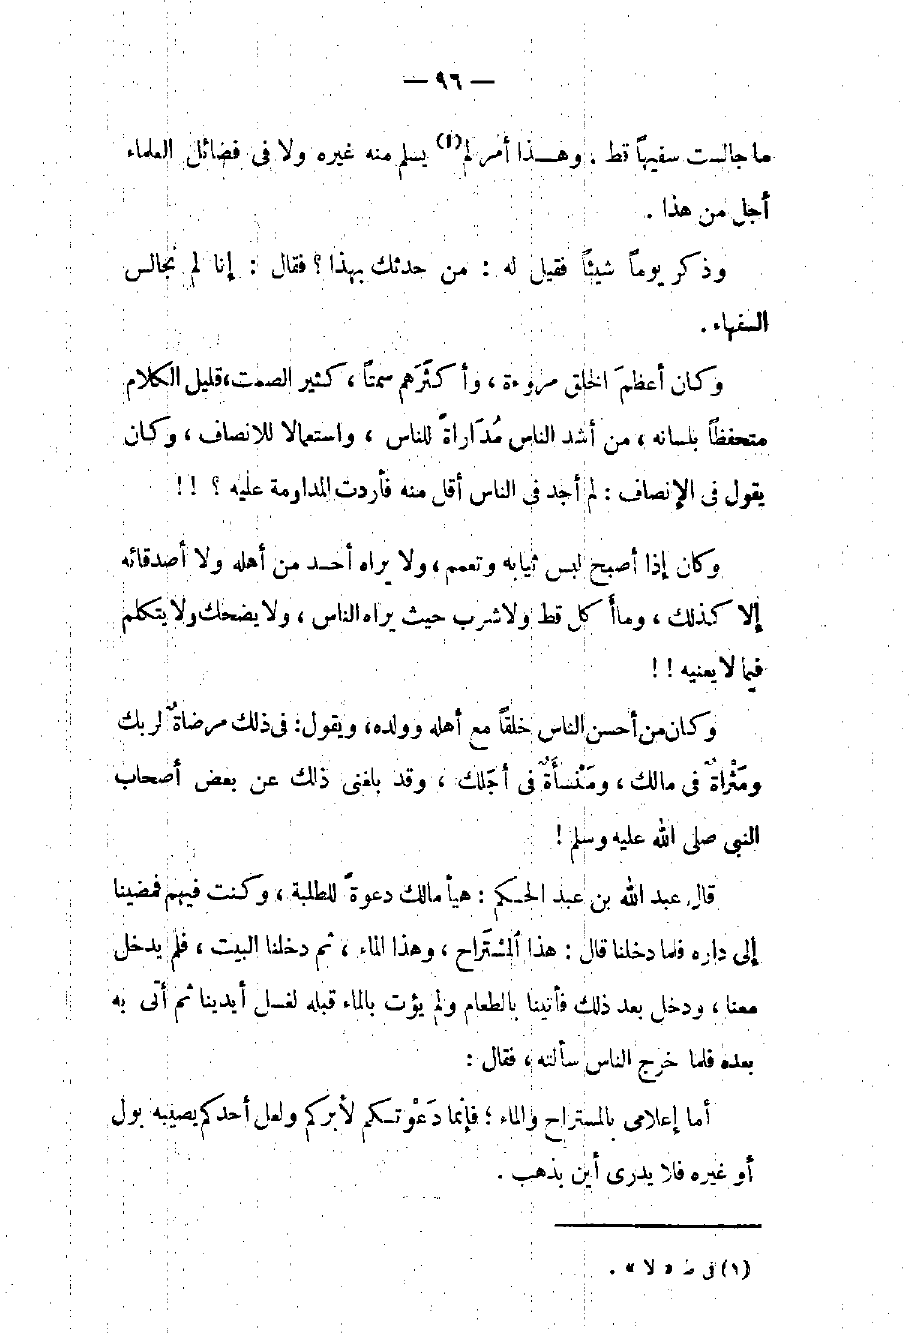 — ٩٦ —
ما جالست سفيهاً قط . وهـذا أمر لم(١) يسلم منه غيره ولا فى فضائل العلماء
أجل من هذا .
وذكر يوماً شيئاً فقيل له : من حدثك بهذا ؟ فقال : إنا لم نجالس
السفهاء .
وكان أعظمَ الخلق مروءة ، وأكثَرَهم سمتاً ، كثير الصمت، قليل الكلام
متحفظاً بلسانه ، من أشد الناس مُدَاراةً للناس ، واستعمالا للانصاف ، وكان
يقول فى الإنصاف : لم أجد فى الناس أقل منه فأردت المداومة عليه ؟ !!
وكان إذا أصبح لبس ثيابه وتعمم ، ولا يراه أحـد من أهله ولا أصدقائه
إلا كذلك ، وما أكل قط ولا شرب حيث يراه الناس ، ولا يضحك ولا يتكلم
فيما لا يعنيه !!
وكان من أحسن الناس خلقاً مع أهله وولده، ويقول: فى ذلك مرضاةٌ لربك
ومَثْراةٌ فى مالك ، ومَنْسأَةٌ فى أجَلك ، وقد بلغنى ذلك عن بعض أصحاب
النبى صلى الله عليه وسلم !
قال عبد الله بن عبد الحـكم : هيأ مالك دعوةً للطلبة ، وكنت فيهم فمضينا
إلى داره فلما دخلنا قال : هذا المُستَراح ، وهذا الماء ، ثم دخلنا البيت ، فلم يدخل
معنا ، ودخل بعد ذلك فأتينا بالطعام ولم يؤت بالماء قبله لغسل أيدينا ثم أتى به
بعده فلما خرج الناس سألته ، فقال :
أما إعلامى بالمستراح والماء ؛ فإنما دَعَوْتـكم لأبركم ولعل أحدكم يصيبه بول
أو غيره فلا يدرى أين يذهب .
(١) فى ط « لا » .